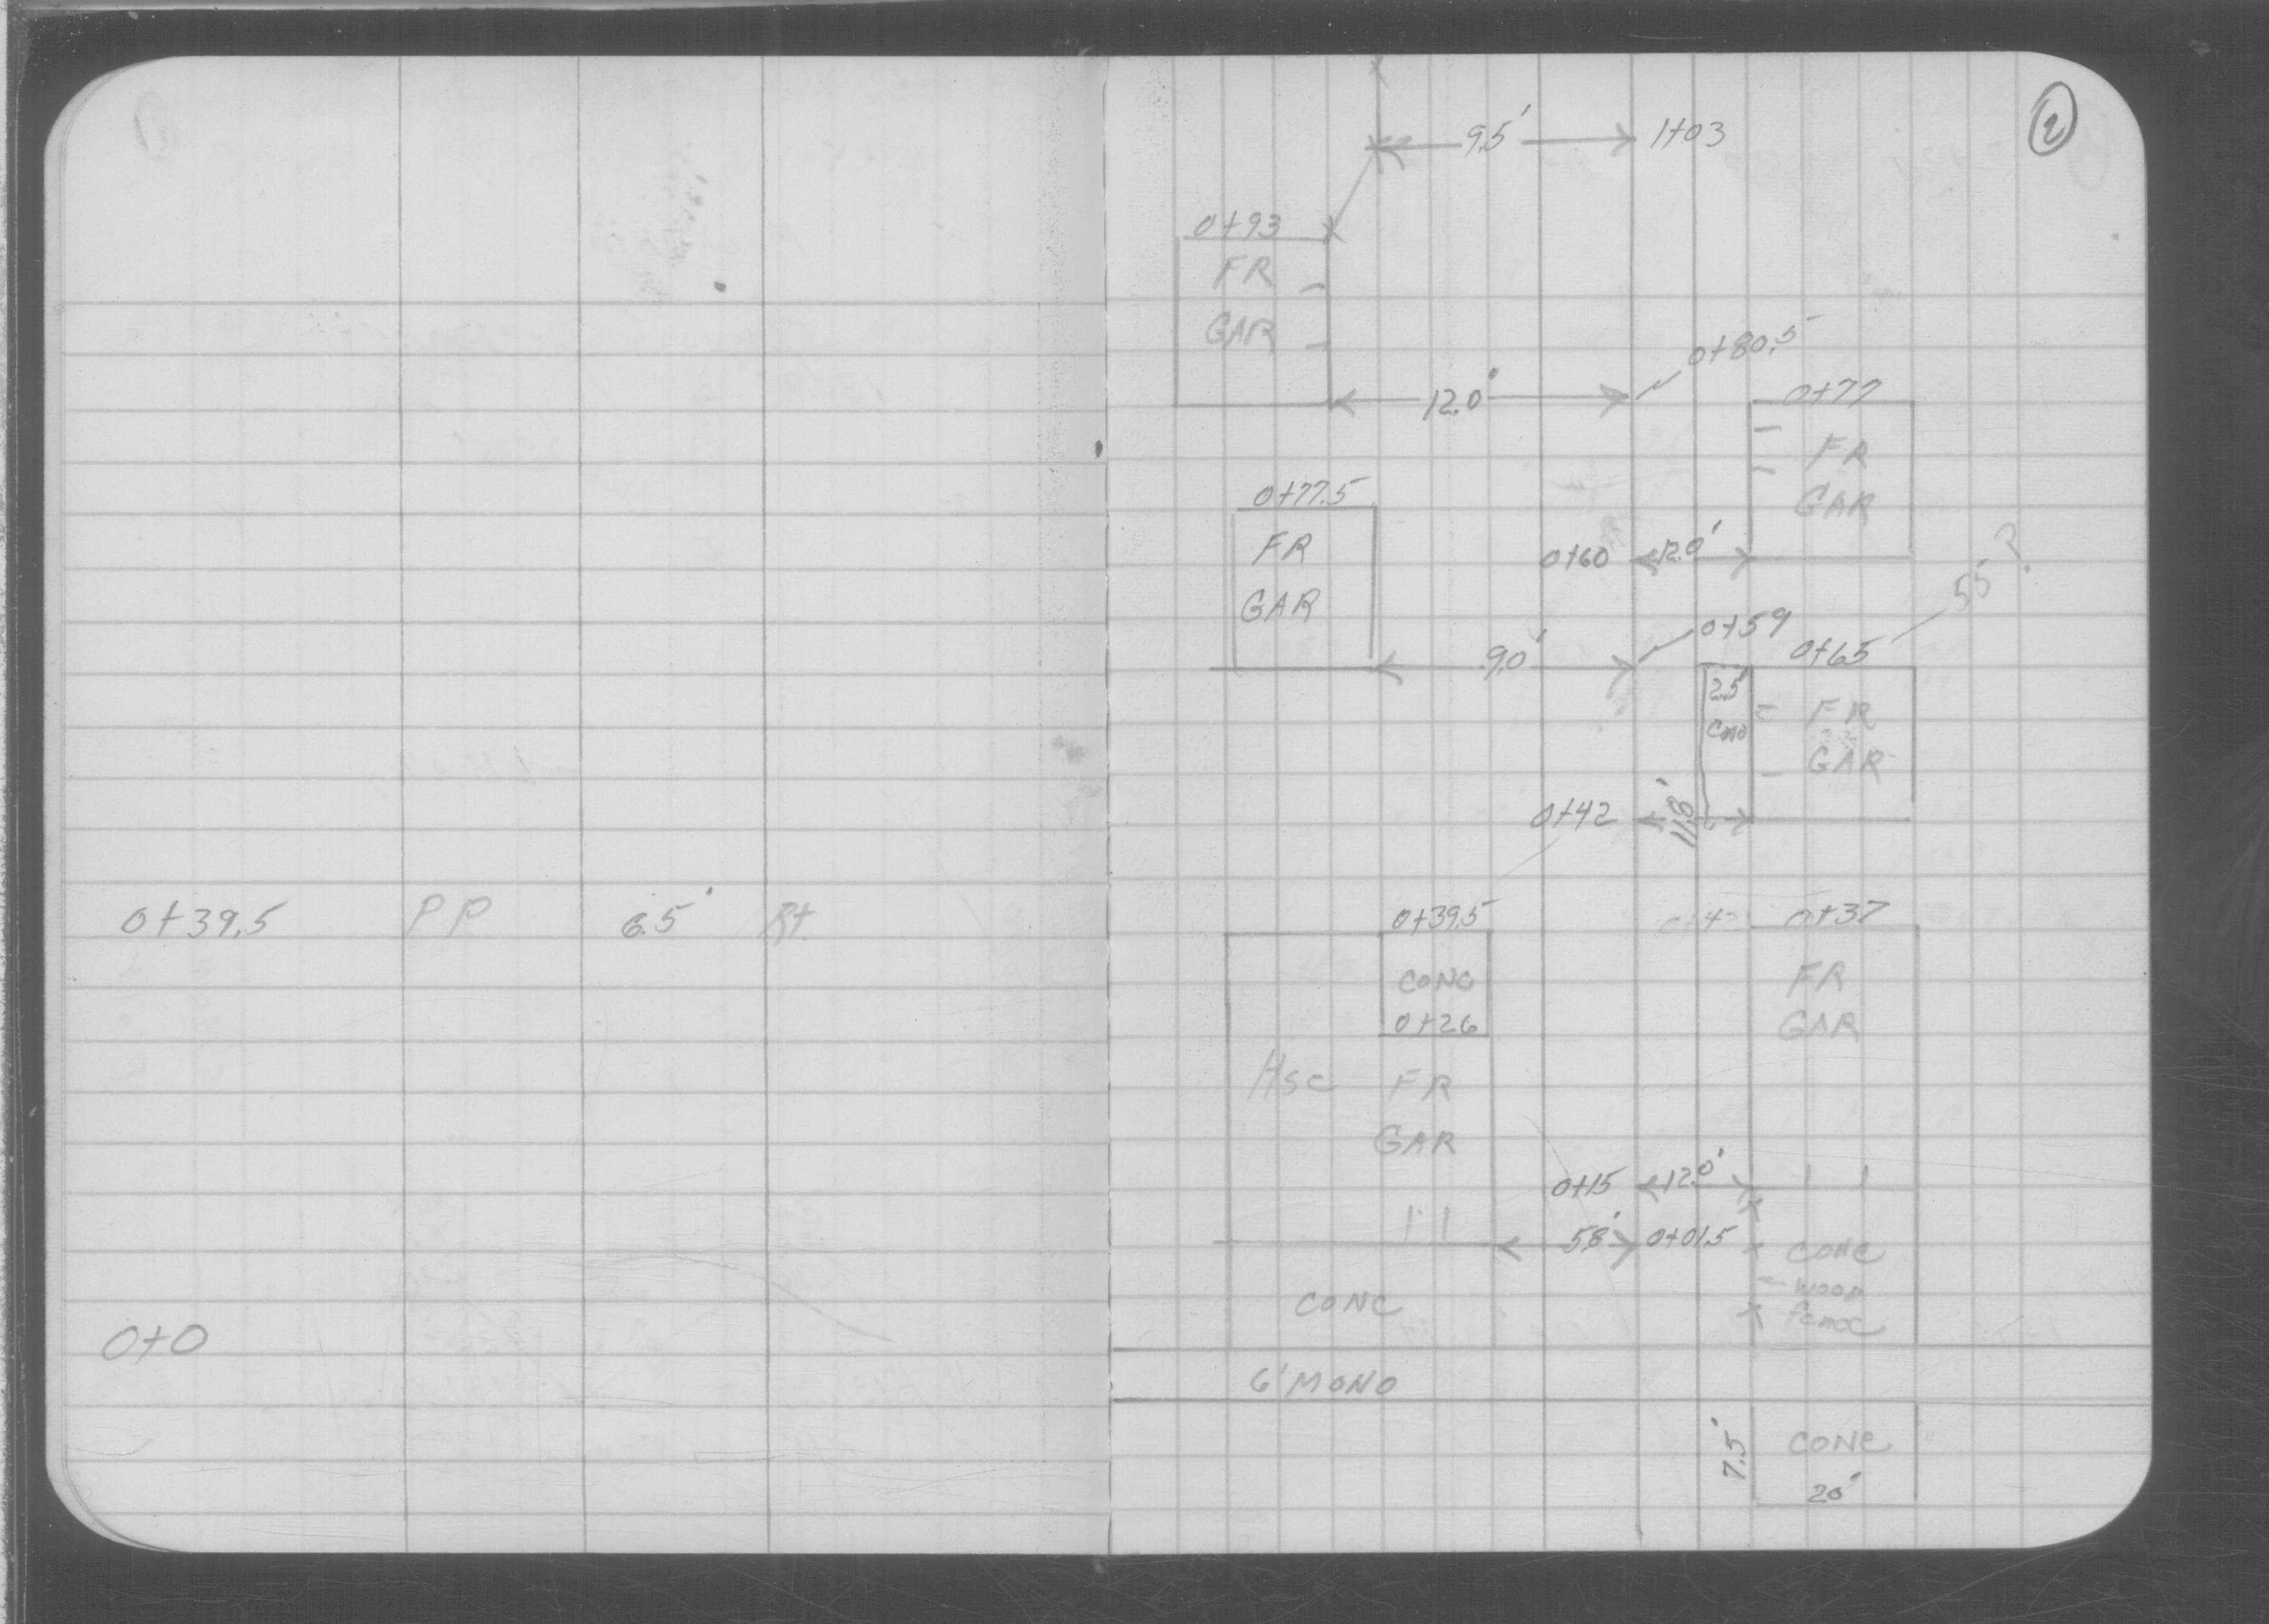 2
9.5' 1+03
0+93
FR
GAR
0+80.5
12.0'
0+77
FR
GAR
0+77.5
FR
GAR
0+60 12.0'
55 ?
0+59
9.0'
0+65
2.5'
FR
GAR
0+42 11.8'
0+39.5 PP 6.5' Rt
0+39.5
CONC
0+26
0+37
FR
GAR
Hse FR
GAR
0+15 12.0'
5.8' 0+01.5
CONC
WOOD
CONC
0+0
6' MONO
7.5'
CONC
20'